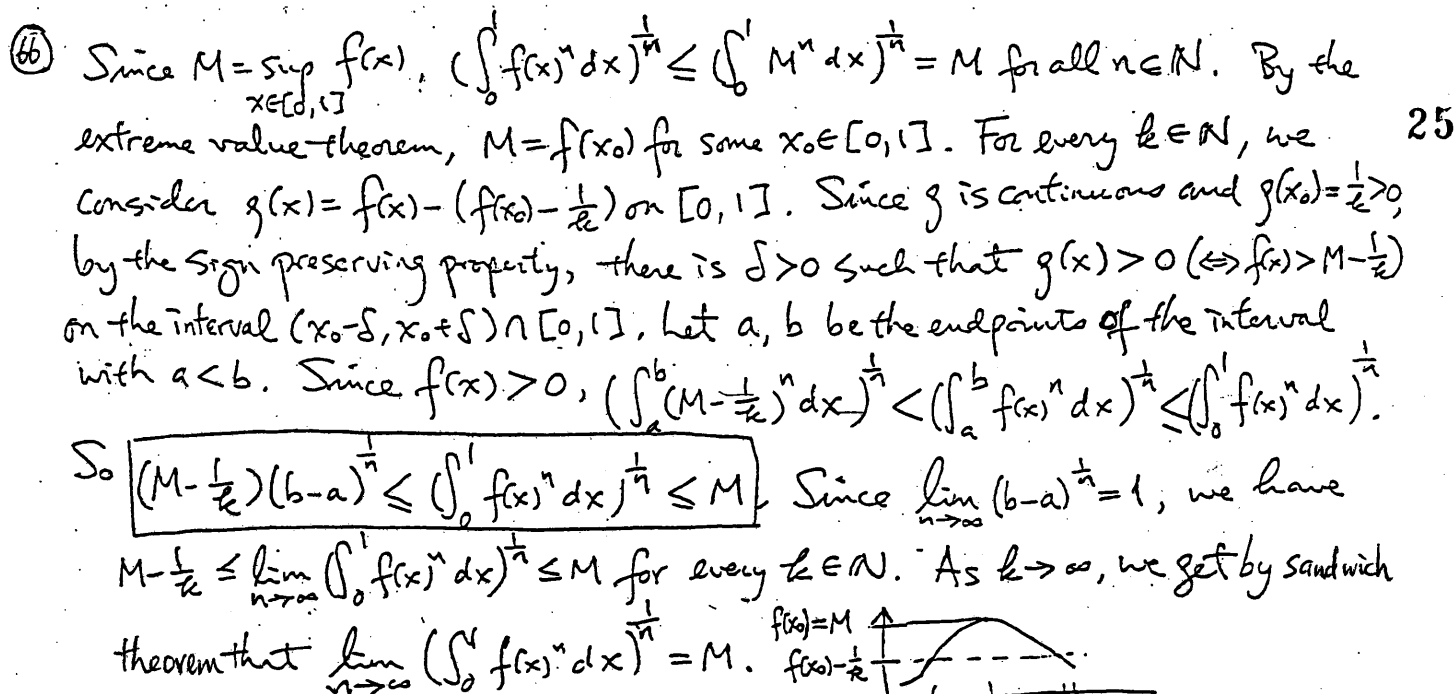 66 Since M = sup_{x∈[0,1]} f(x), (∫_0^1 f(x)^n dx)^{1/n} ≤ (∫_0^1 M^n dx)^{1/n} = M for all n∈N. By the
25
extreme value theorem, M = f(x_0) for some x_0∈[0,1]. For every k∈N, we
consider g(x) = f(x) - (f(x_0) - 1/k) on [0,1]. Since g is continuous and g(x_0) = 1/k > 0,
by the sign preserving property, there is δ>0 such that g(x) > 0 (⇔ f(x) > M - 1/k)
on the interval (x_0-δ, x_0+δ)∩[0,1]. Let a, b be the endpoints of the interval
with a<b. Since f(x) > 0, (∫_a^b (M - 1/k)^n dx)^{1/n} < (∫_a^b f(x)^n dx)^{1/n} ≤ (∫_0^1 f(x)^n dx)^{1/n}.
So (M - 1/k)(b-a)^{1/n} ≤ (∫_0^1 f(x)^n dx)^{1/n} ≤ M. Since lim_{n→∞} (b-a)^{1/n} = 1, we have
M - 1/k ≤ lim_{n→∞} (∫_0^1 f(x)^n dx)^{1/n} ≤ M for every k∈N. As k→∞, we get by sandwich
theorem that lim_{n→∞} (∫_0^1 f(x)^n dx)^{1/n} = M.
f(x_0)=M
f(x_0)-1/k